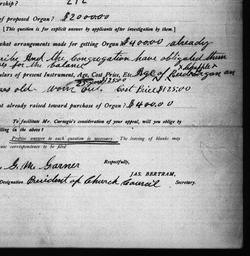 ership? 272
of proposed Organ? $2000.00
[This question is for explicit answer by applicants after investigation on
what arrangements made for getting Organ? $400.00 already
and the Congregation have obligated them
for the balance
ulars of present Instrument, Age, Cost Price, Etc.
years old. worn out. Cost Price $125.00
nt already raised toward purchase of Organ? $400.00
To facilitate Mr. Carnegie's consideration of your appeal, will you oblige by
lling in the above!
Precise answers to each question is necessary. The leaving of blanks may
use correspondence to be filed
Respectfully,
G. M. Garner
JAS. BERTRAM,
Designation President of Church Council Secretary.